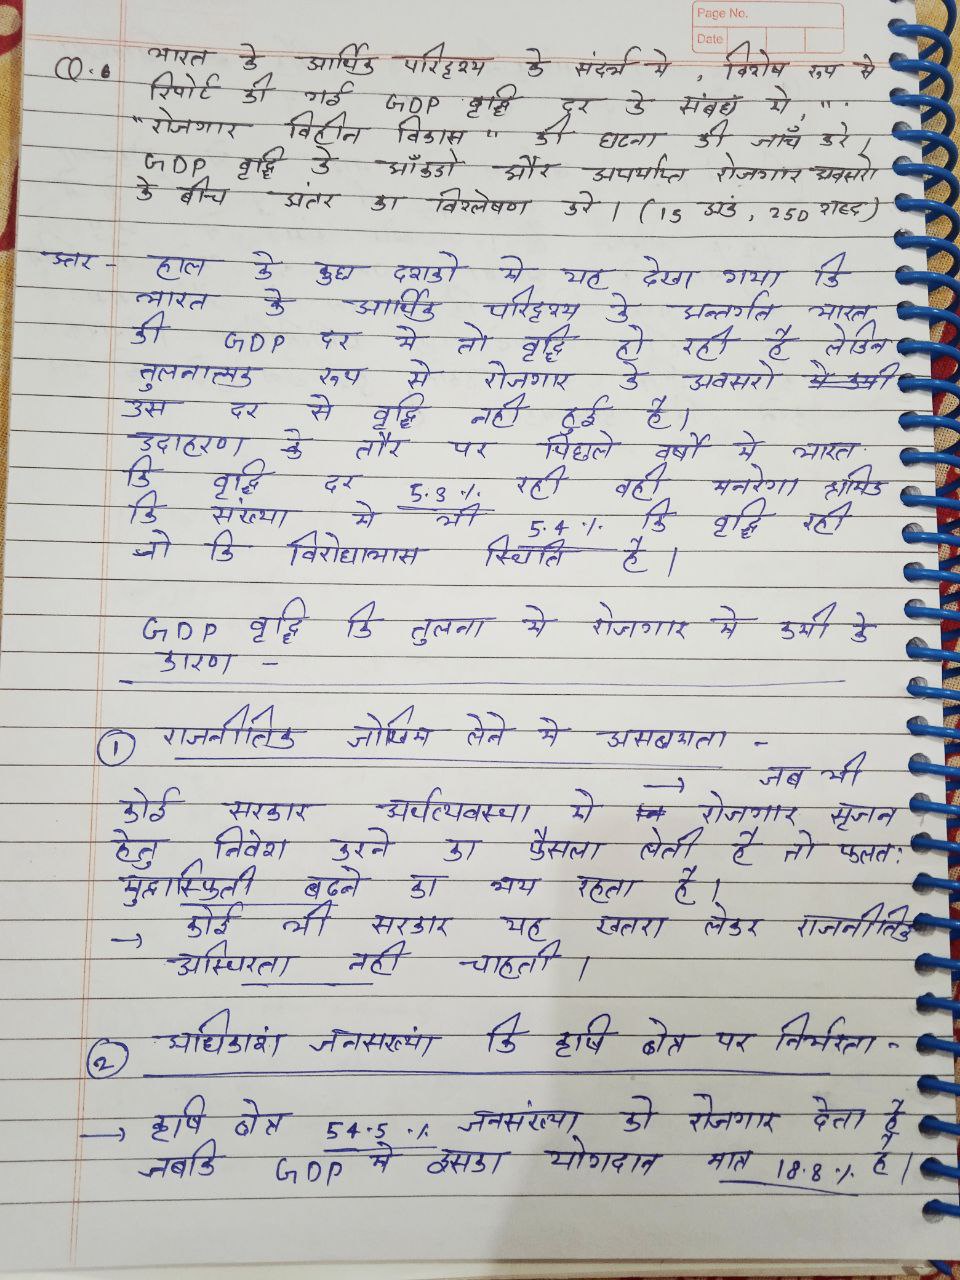 Page No.
Date
Q.6 भारत के आर्थिक परिदृश्य के संदर्भ मे, विशेष रूप से
रिपोर्ट की गई GDP वृद्धि दर के संबधं मे, "
"रोजगार विहीन विकास" की घटना की जाचँ करे।
GDP वृद्धि के आँकडो और अपर्याप्त रोजगार अवसरो
के बीच अंतर का विश्लेषण करे। (15 अंक, 250 शब्द)
उत्तर - हाल के कुछ दशको मे यह देखा गया कि
भारत के आर्थिक परिदृश्य के अन्तर्गत भारत
की GDP दर मे तो वृद्धि हो रही है लेकिन
तुलनात्मक रूप से रोजगार के अवसरो मे कमी
उस दर से वृद्धि नही हुई है।
उदाहरण के तौर पर पिछले वर्षों मे भारत
कि वृद्धि दर 5.3% रही वही मनरेगा श्रमिक
कि संख्या मे भी 5.4% कि वृद्धि रही
जो कि विरोधाभास स्थिति है।
GDP वृद्धि कि तुलना मे रोजगार मे कमी के
कारण -
① राजनीतिक जोखिम लेने मे असक्षमता -
→ जब भी
कोई सरकार अर्थव्यवस्था मे रोजगार सृजन
हेतु निवेश करने का फैसला लेती है तो फलतः
मुद्रास्फिती बढने का भय रहता है।
→ कोई भी सरकार यह खतरा लेकर राजनीतिक
अस्थिरता नही चाहती।
② अधिकाशं जनसख्यां कि कृषि क्षेत्र पर निर्भरता -
→ कृषि क्षेत्र 54.5% जनसंख्या को रोजगार देता है
जबकि GDP मे इसका योगदान मात्र 18.8% है।